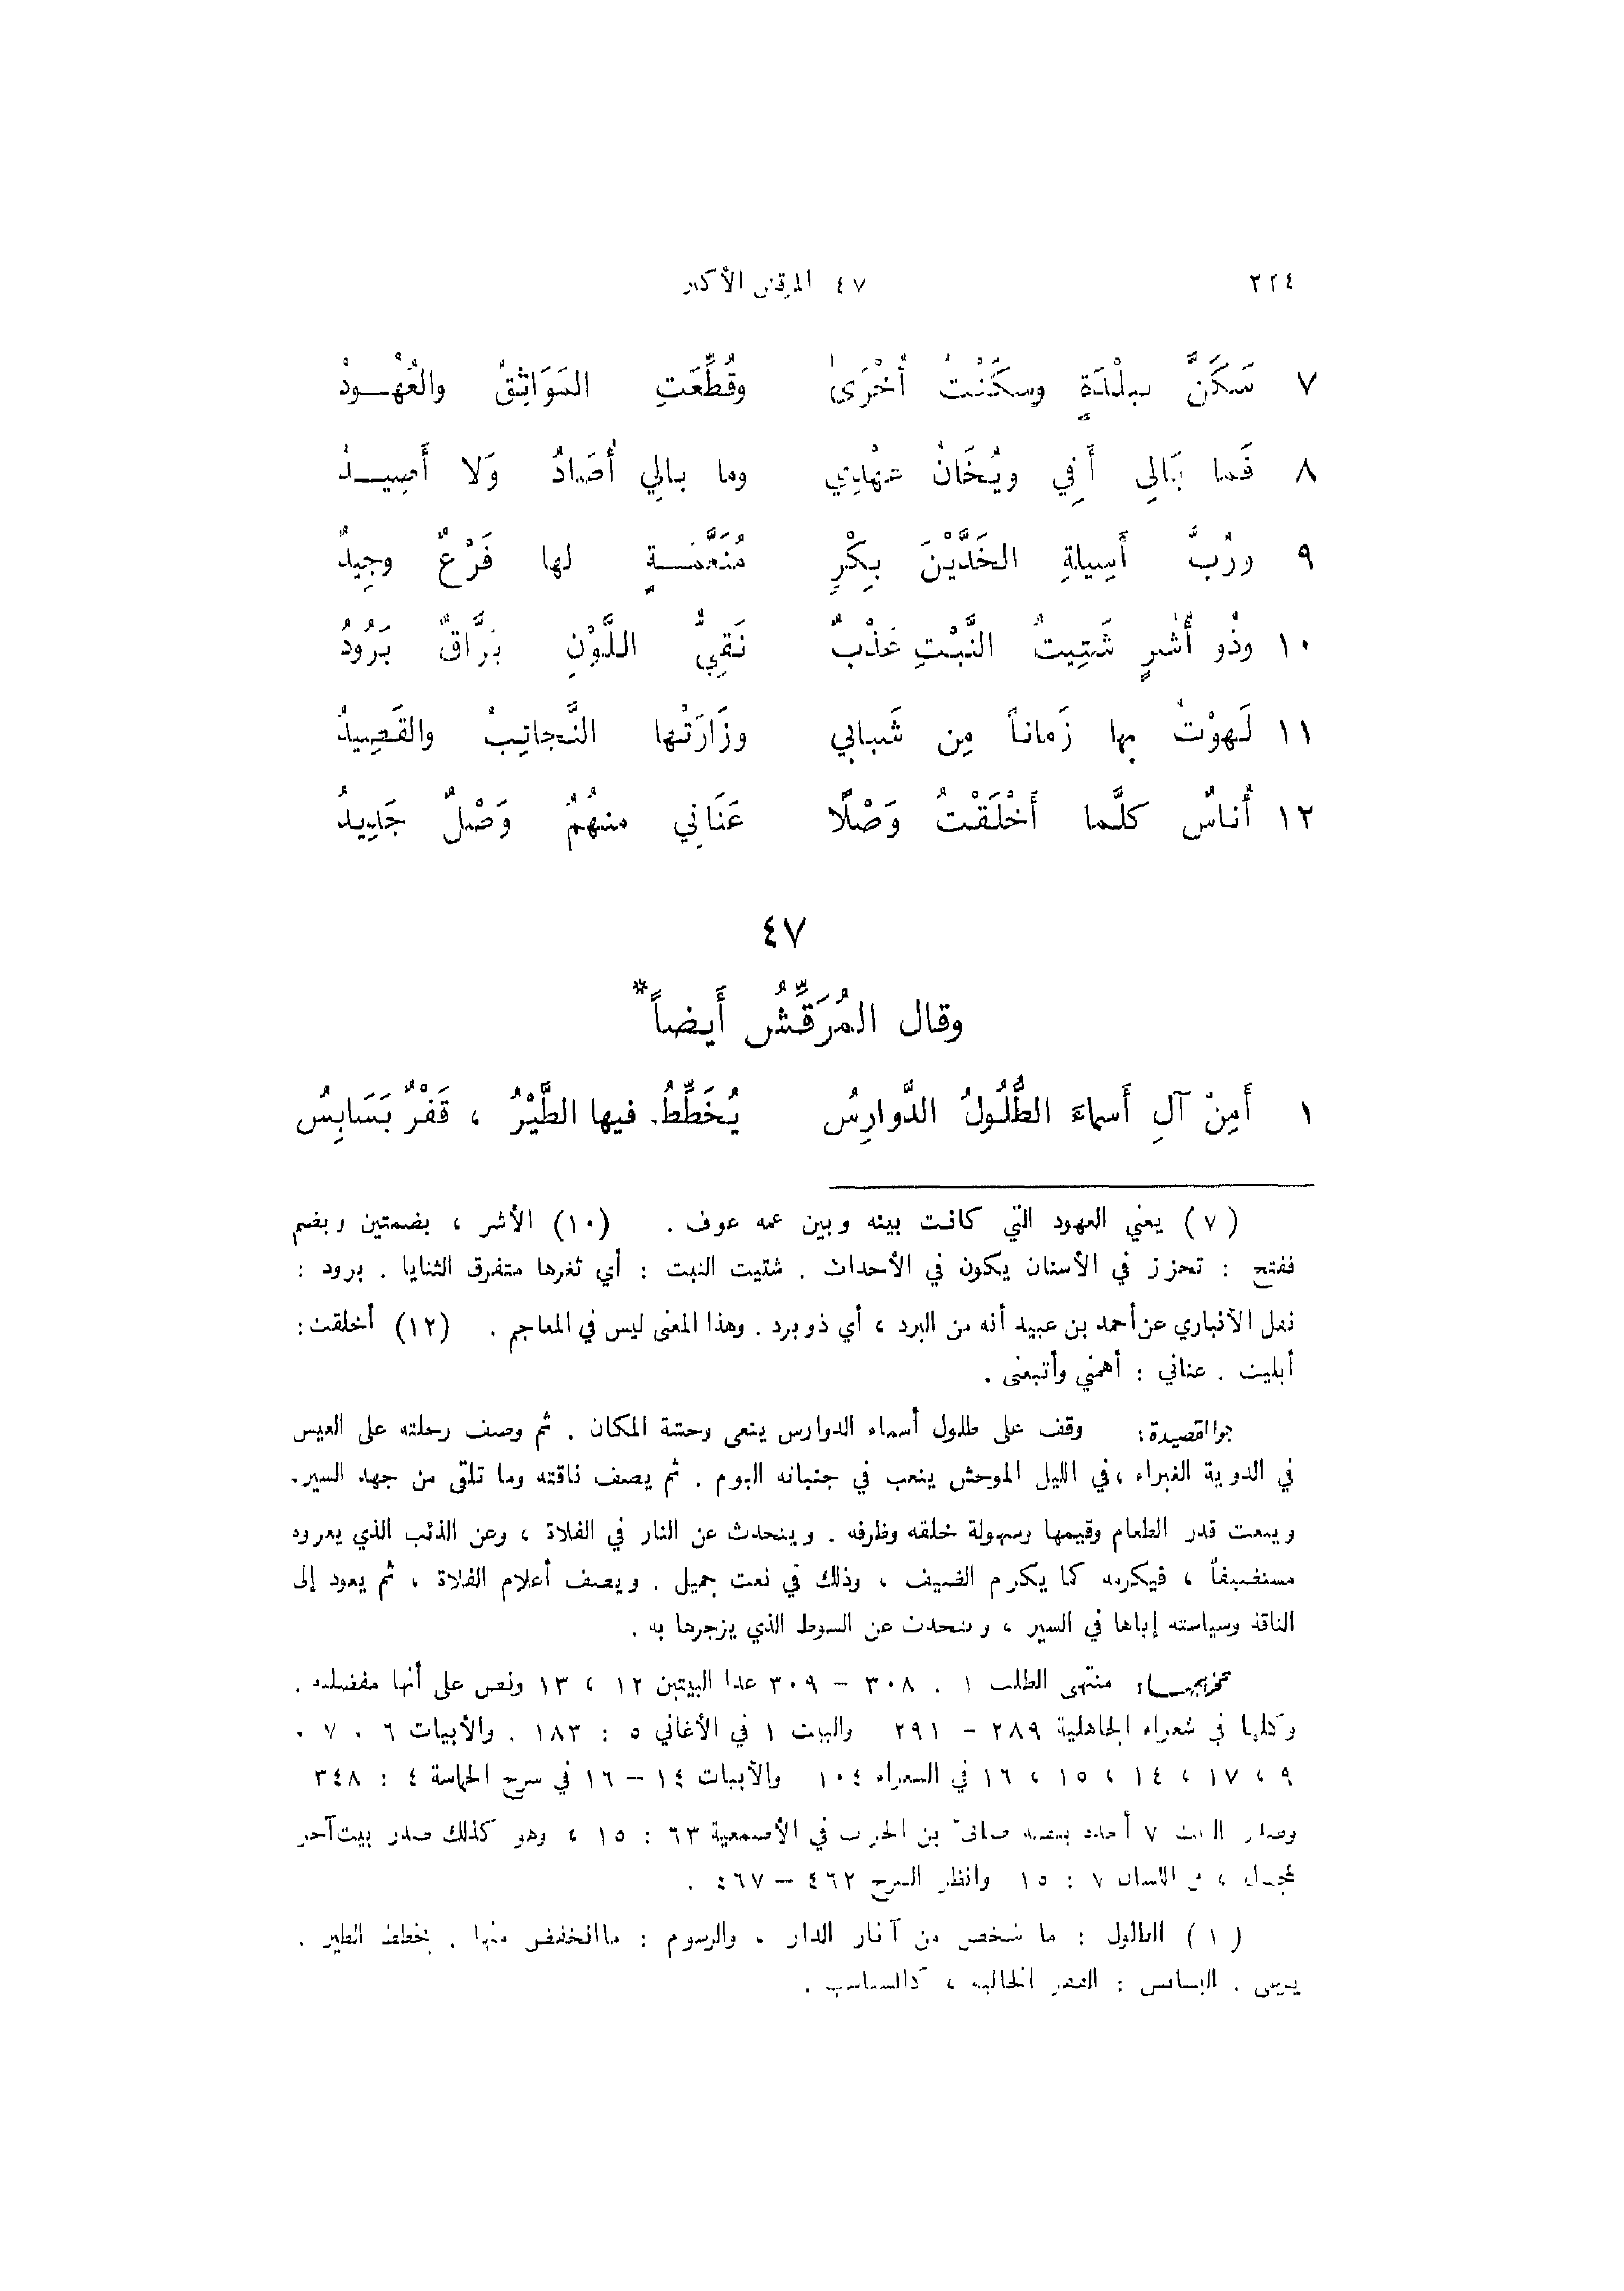 ٢٢٤ ٤٧ المرقش الأكبر
٧ سَكَنَّ ببلْدَةٍ وسكَنْتُ أُخْرَىٰ وقُطِّعَتِ المَوَاثِقُ والعُهُودُ
٨ فَما بَالِي أَفِي ويُخَانُ عَهْدِي وما بالِي أُصَادُ وَلا أَصِيدُ
٩ ورُبَّ أَسِيلةِ الخَدَّيْنِ بِكْرٍ مُنَعَّمَةٍ لها فَرْعٌ وجِيدُ
١٠ وذُو أُشُرٍ شَتِيتُ النَّبْتِ عَذْبٌ نَقِيُّ اللَّوْنِ بَرَّاقٌ بَرُودُ
١١ لَهوْتُ بها زَماناً مِن شَبابي وزَارَتْها النَّجائِبُ والقَصِيدُ
١٢ أُناسٌ كلَّما أَخْلَقْتُ وَصْلًا عَنَانِي منهُمُ وَصْلٌ جَدِيدُ
٤٧
وقال المُرَقِّشُ أَيضاً*
١ أَمِنْ آلِ أَسماءَ الطُّلُولُ الدَّوارِسُ يُخَطِّطُ فيها الطَّيْرُ ، قَفْرٌ بَسَابِسُ
(٧) يعني العهود التي كانت بينه وبين عمه عوف . (١٠) الأشر ، بضمتين وبضم
ففتح : تحزز في الأسنان يكون في الأحداث . شتيت النبت : أي ثغرها متفرق الثنايا . برود :
نقل الأنباري عن أحمد بن عبيد أنه من البرد ، أي ذو برد . وهذا المعنى ليس في المعاجم . (١٢) أخلقت :
أبليت . عناني : أهمني وأتبعني .
جو القصيدة : وقف على طلول أسماء الدوارس ينعى وحشة المكان . ثم وصف رحلته على العيس
في الدوية الغبراء ، في الليل الموحش ينعب في جنباته البوم . ثم يصف ناقته وما تلقى من جهد السير .
وينعت قدر الطعام وقيمها وسهولة خلقه وظرفه . ويتحدث عن النار في الفلاة ، وعن الذئب الذي يعروه
مستضيفاً ، فيكرمه كما يكرم الضيف ، وذلك في نعت جميل . ويصف أعلام الفلاة ، ثم يعود إلى
الناقة وسياسته إياها في السير ، ويتحدث عن السوط الذي يزجرها به .
تخريجها : منتهى الطلب ١ . ٣٠٨ – ٣٠٩ عدا البيتين ١٢ ، ١٣ ونص على أنها مفضلية .
وكلها في شعراء الجاهلية ٢٨٩ – ٢٩١ والبيت ١ في الأغاني ٥ : ١٨٣ . والأبيات ٦ ، ٧ ،
٩ ، ١٧ ، ١٤ ، ١٥ ، ١٦ في الشعراء ١٠٤ والأبيات ١٤ – ١٦ في شرح الحماسة ٤ : ٣٤٨
وصدر البيت ٧ أخذه بنصه بن الحرث في الأصمعية ٦٣ : ١٥ ، وهو كذلك صدر بيت آخر
، في اللسان ٧ : ١٥ وانظر الشرح ٤٦٢ – ٤٦٧ .
(١) الطلول : ما شخص من آثار الدار . والرسوم : ما انخفض منها . يخطط الطير .
البسابس : القفر الخالية ، كالسباسب .